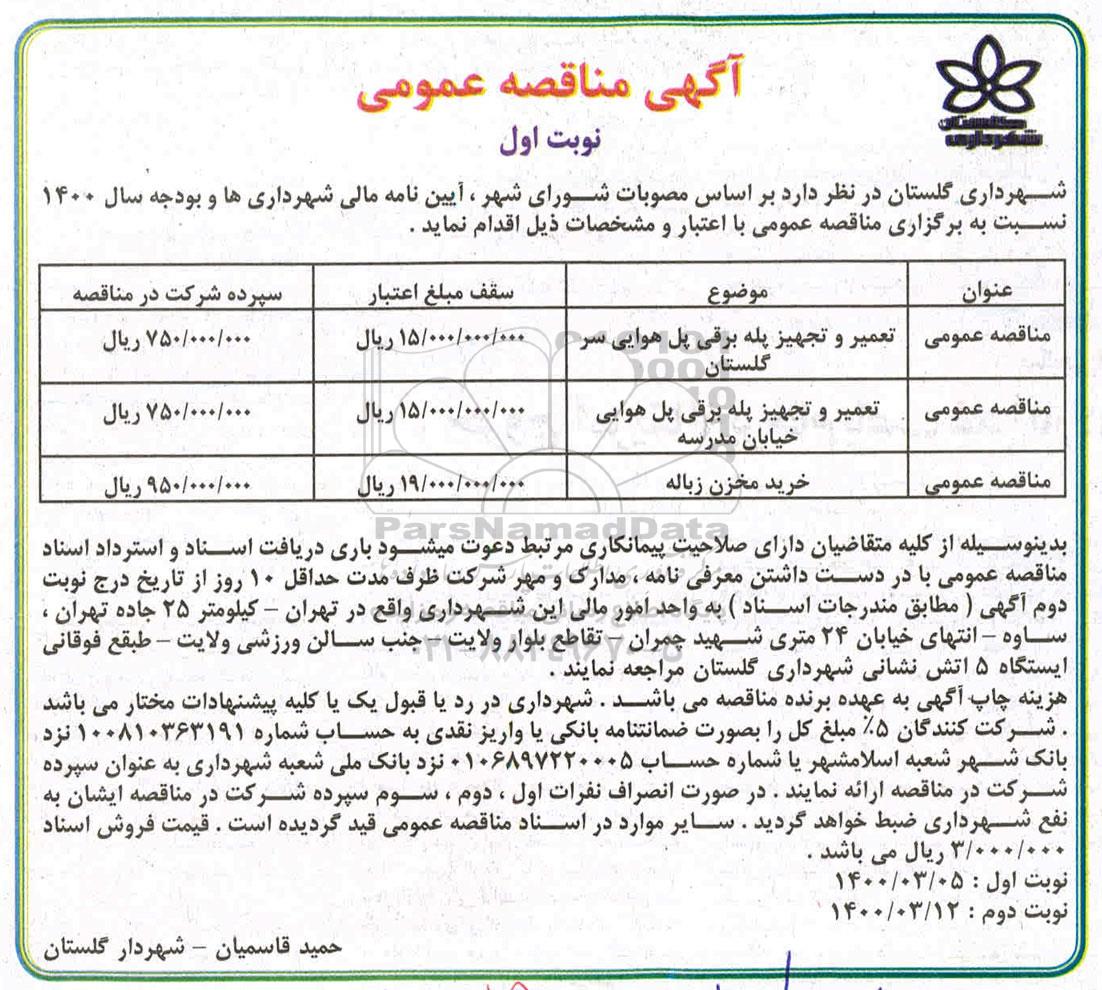 آگهی مناقصه عمومی
گلستان
شهرداری
نوبت اول
شهرداری گلستان در نظر دارد بر اساس مصوبات شورای شهر ، آیین نامه مالی شهرداری ها و بودجه سال ۱۴۰۰
نسبت به برگزاری مناقصه عمومی با اعتبار و مشخصات ذیل اقدام نماید .
عنوان موضوع سقف مبلغ اعتبار سپرده شرکت در مناقصه
مناقصه عمومی تعمیر و تجهیز پله برقی پل هوایی سر ۱۵/۰۰۰/۰۰۰/۰۰۰ ریال ۷۵۰/۰۰۰/۰۰۰ ریال
گلستان
مناقصه عمومی تعمیر و تجهیز پله برقی پل هوایی ۱۵/۰۰۰/۰۰۰/۰۰۰ ریال ۷۵۰/۰۰۰/۰۰۰ ریال
خیابان مدرسه
مناقصه عمومی خرید مخزن زباله ۱۹/۰۰۰/۰۰۰/۰۰۰ ریال ۹۵۰/۰۰۰/۰۰۰ ریال
ParsNamadData
بدینوسیله از کلیه متقاضیان دارای صلاحیت پیمانکاری مرتبط دعوت میشود باری دریافت اسناد و استرداد اسناد
مناقصه عمومی با در دست داشتن معرفی نامه ، مدارک و مهر شرکت ظرف مدت حداقل ۱۰ روز از تاریخ درج نوبت
دوم آگهی ( مطابق مندرجات اسناد ) به واحد امور مالی این شهرداری واقع در تهران – کیلومتر ۲۵ جاده تهران ،
ساوه – انتهای خیابان ۲۴ متری شهید چمران – تقاطع بلوار ولایت – جنب سالن ورزشی ولایت – طبقع فوقانی
ایستگاه ۵ اتش نشانی شهرداری گلستان مراجعه نمایند .
هزینه چاپ آگهی به عهده برنده مناقصه می باشد . شهرداری در رد یا قبول یک یا کلیه پیشنهادات مختار می باشد
. شرکت کنندگان ۵٪ مبلغ کل را بصورت ضمانتنامه بانکی یا واریز نقدی به حساب شماره ۱۰۰۸۱۰۳۶۳۱۹۱ نزد
بانک شهر شعبه اسلامشهر یا شماره حساب ۰۱۰۶۸۹۷۲۲۰۰۰۵ نزد بانک ملی شعبه شهرداری به عنوان سپرده
شرکت در مناقصه ارائه نمایند . در صورت انصراف نفرات اول ، دوم ، سوم سپرده شرکت در مناقصه ایشان به
نفع شهرداری ضبط خواهد گردید . سایر موارد در اسناد مناقصه عمومی قید گردیده است . قیمت فروش اسناد
۳/۰۰۰/۰۰۰ ریال می باشد .
نوبت اول : ۱۴۰۰/۰۳/۰۵
نوبت دوم : ۱۴۰۰/۰۳/۱۲
حمید قاسمیان – شهردار گلستان